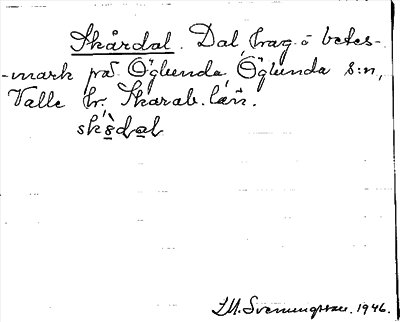 Skårdal. Dal, hag o betes-
-mark på Öglunda, Öglunda s:n,
Valle hr, Skarab. län.
skòdal
J.M. Svenungsson. 1946.